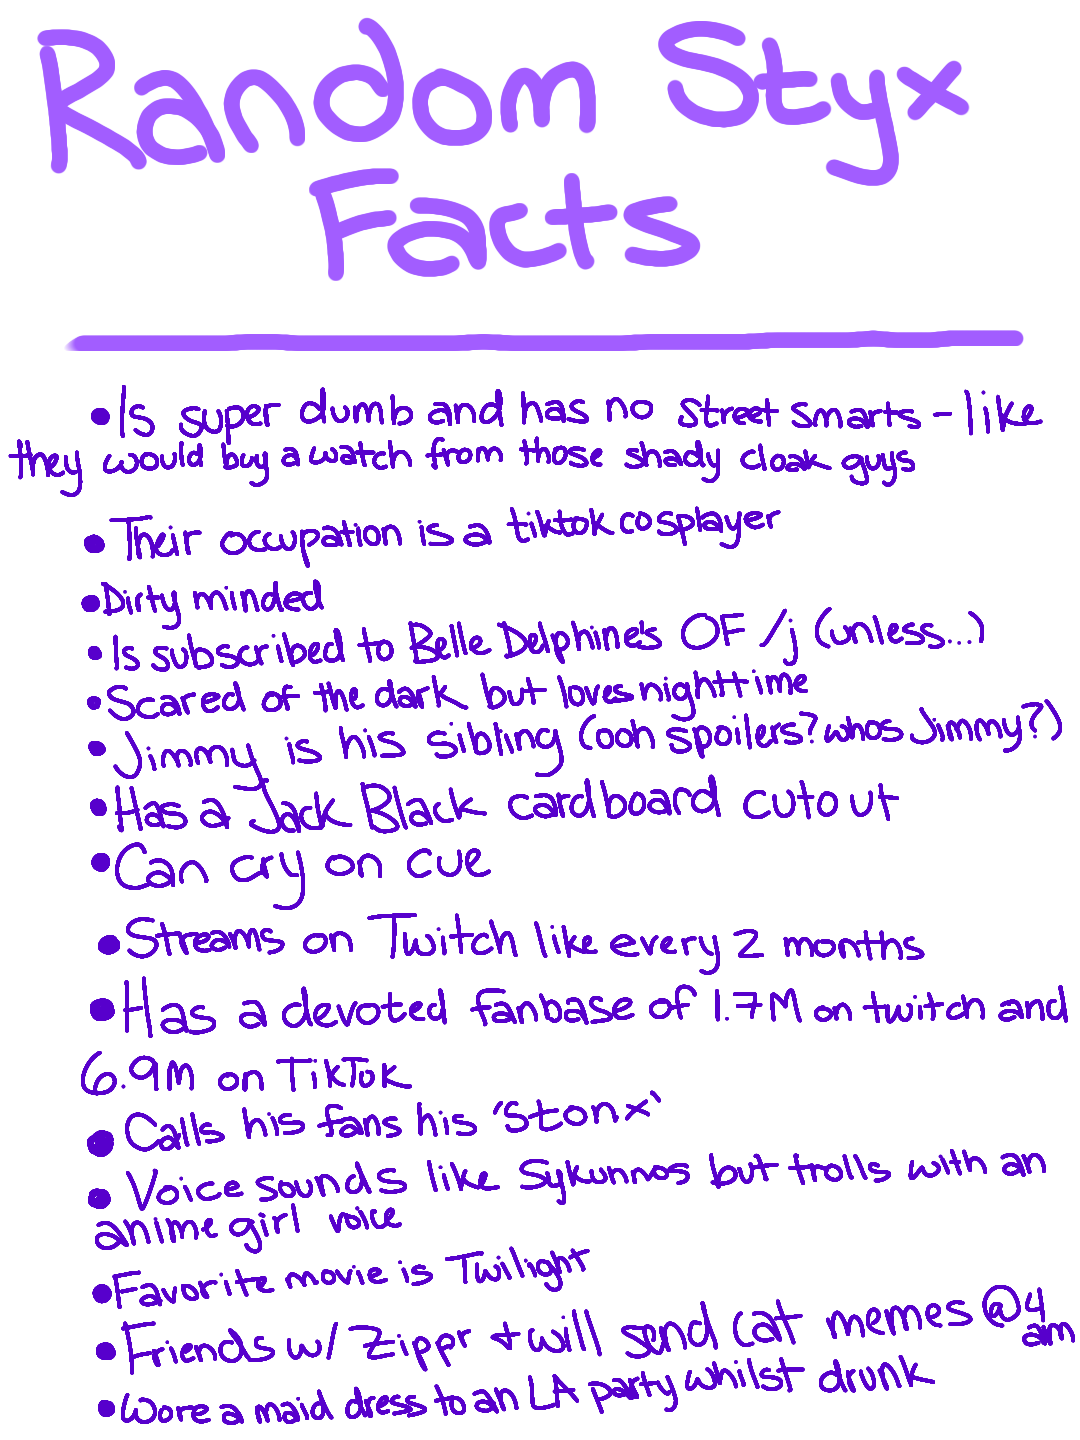 Random Styx
Facts
• Is super dumb and has no street smarts - like
they would buy a watch from those shady cloak guys
• Their occupation is a tiktok cosplayer
• Dirty minded
• Is subscribed to Belle Delphine's OF /j (unless...)
• Scared of the dark but loves nighttime
• Jimmy is his sibling (ooh spoilers? whos Jimmy?)
• Has a Jack Black cardboard cutout
• Can cry on cue
• Streams on Twitch like every 2 months
• Has a devoted fanbase of 1.7M on twitch and
6.9M on TikTok
• Calls his fans his 'Stonx'
• Voice sounds like Sykunnos but trolls with an
anime girl voice
• Favorite movie is Twilight
• Friends w/ Zippr + will send cat memes @ 4
am
• Wore a maid dress to an LA party whilst drunk